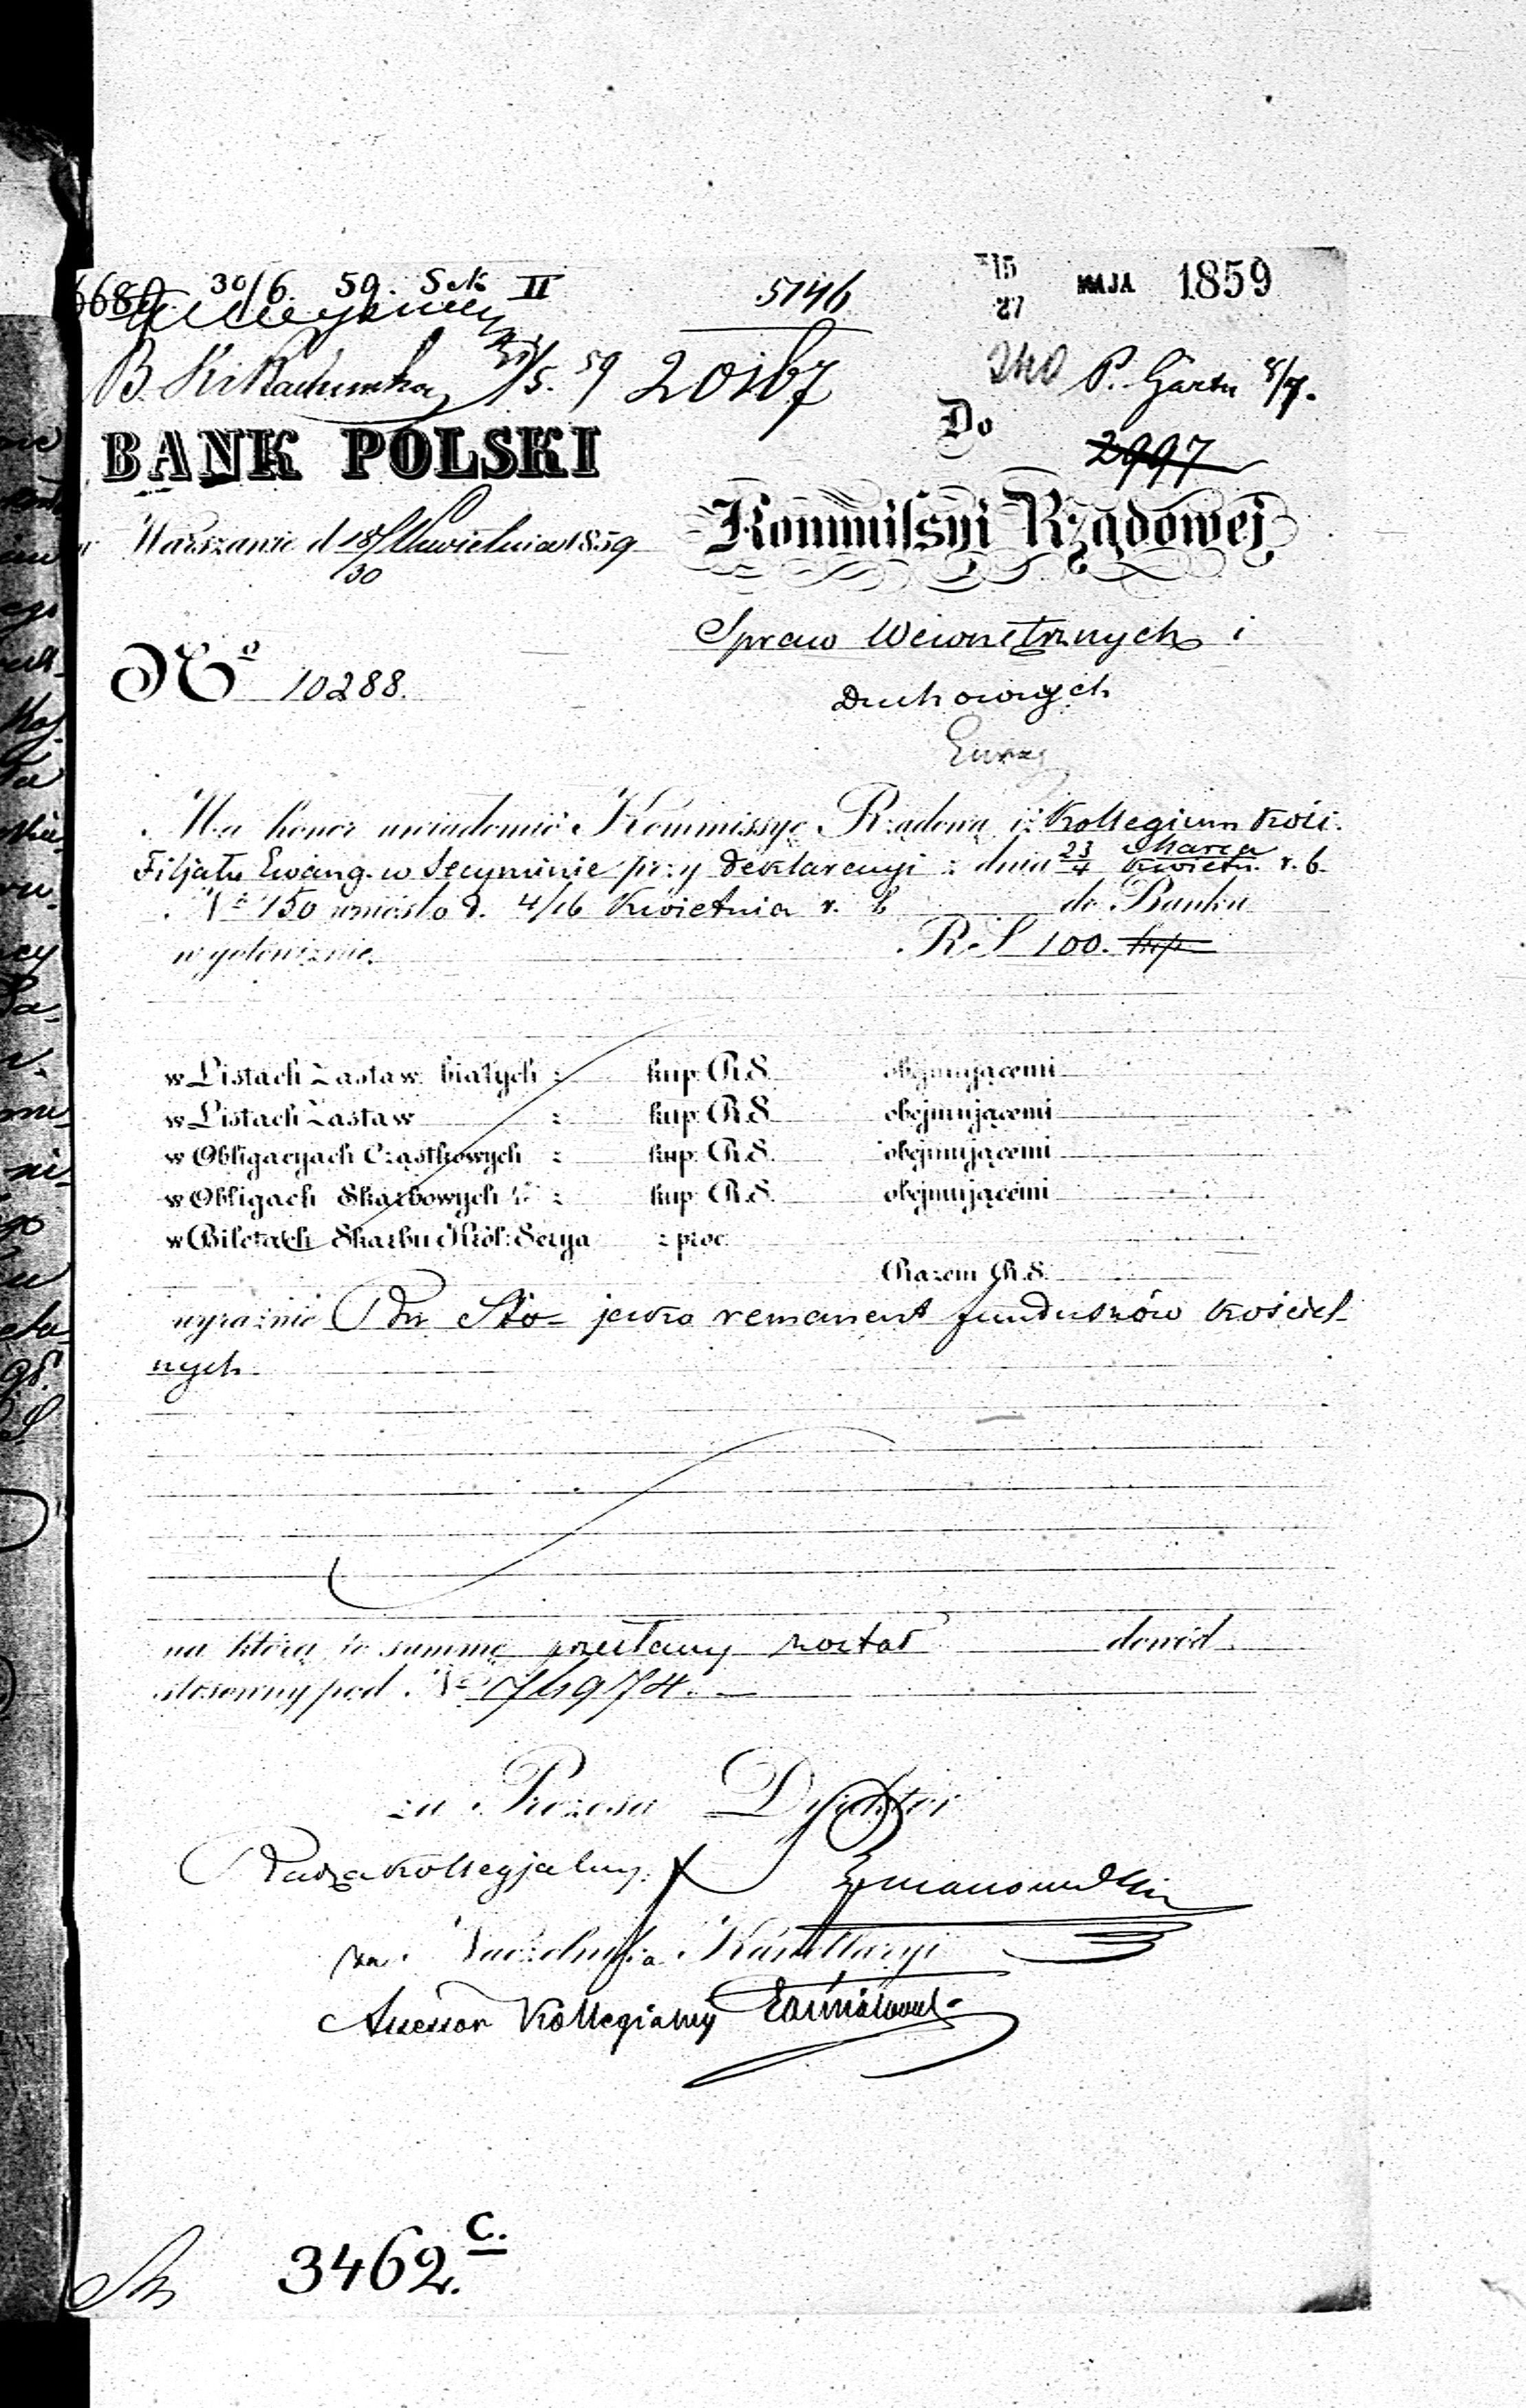 6689 30/6 59. Sek II
5146
15/27 MAJA 1859
B. 31/5. 59 20167
240 P. 8/7.
BANK POLSKI
Do
2997
w Warszawie d 18/30 Kwietnia 1859
Kommissyi Rządowej
Spraw Wewnetrznych i
Duchownych
No 10288.
Ma honor uwiadomić Kommissyę Rządową iż Kollegium Kości.
Filjału Ewang. w Secyminie przy Deklaracyi z dnia 23 Marca/4 Kwietn. r. b.
No 150 wniosło d. 4/16 Kwietnia r. b. do Banku
w gotowiznie RS 100. kup.
w Listach Zastaw. białych z kup. R.S. obejmującemi
w Listach Zastaw z kup. R.S. obejmującemi
w Obligacyach Cząstkowych z kup. R.S. obejmującemi
w Obligach Skarbowych z kup. R.S. obejmującemi
w Biletach Skarbu Król: Serya z proc.
Razem R.S.
wyraźnie Rsr Sto= jako remanent funduszów kościel-
nych.
na którą to summę przesłany został dowód
stosowny pod No 76974.
za Prezesa Dyrektor
Radza Kollegjalny.
za Naczelnika Kancellaryi
Assessor Kollegialny
3462. c.